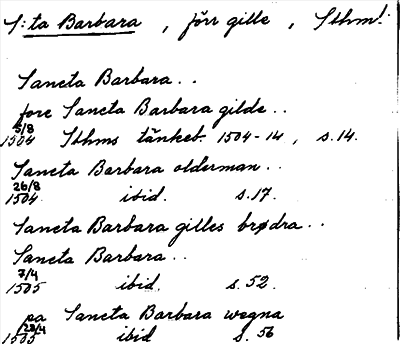 S:ta Barbara, förr gille, Sthm!
Sancta Barbara..
fore Sancta Barbara gilde..
5/8 1504 Sthms tänkeb. 1504-14, s.14.
Sancta Barbara olderman..
26/8 1504. ibid. s.17.
Sancta Barbara gilles brødra..
Sancta Barbara..
7/4 1505 ibid. s.52.
pa Sancta Barbara wegna
28/4 1505 ibid s.56